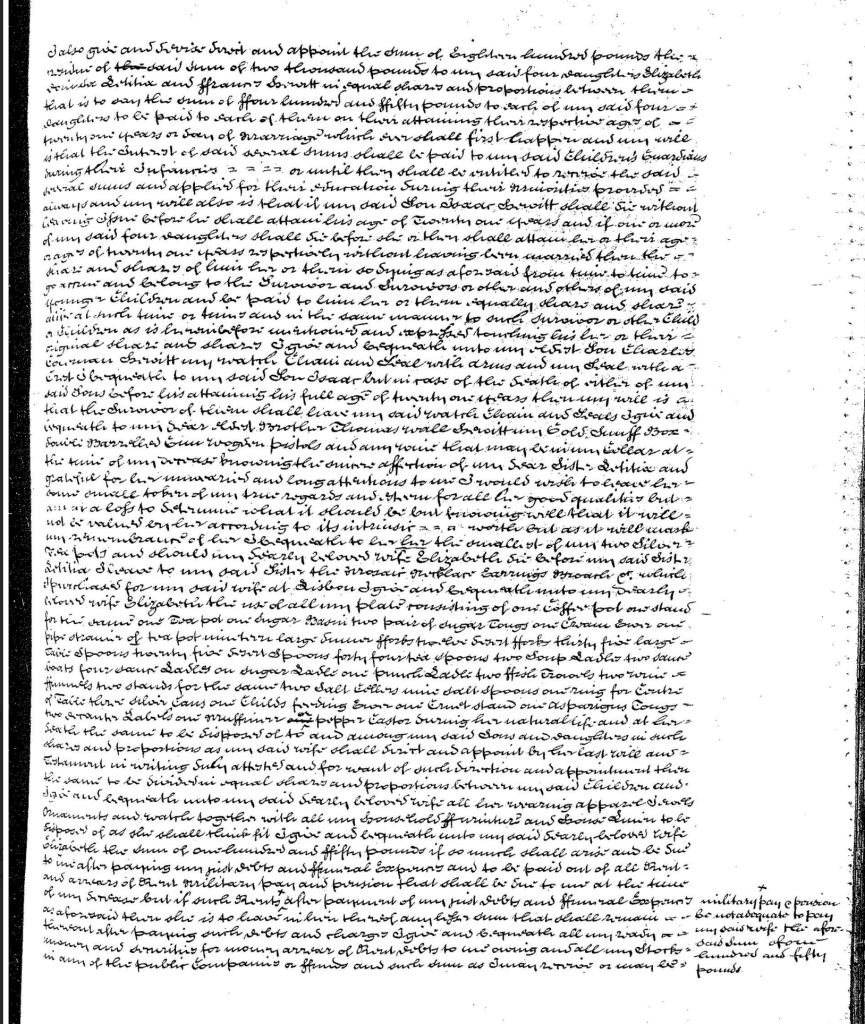 I also give and devise direct and appoint the sum of Eighteen hundred pounds the =
residue of the said sum of two thousand pounds to my said four daughters Elizabeth
Louisa Letitia and ffrances Hewitt in equal shares and proportions between them =
that is to say the sum of ffour hundred and ffifty pounds to each of my said four = =
daughters to be paid to each of them on their attaining their respective ages of = =
twenty one years or day of Marriage which ever shall first happen and my will
is that the Interest of said several sums shall be paid to my said Childrens Guardians
during their Infancies = = = = or until they shall be entitled to receive the said =
several sums and applied for their education during their Minorities provided = =
always and my will also is that if my said Son Isaac Hewitt shall die without
leaving Issue before he shall attain his age of Twenty one years and if one or more
of my said four daughters shall die before she or they shall attain her or their age =
or ages of twenty one years respectively without having been married then the =
share and shares of him her or them so dying as aforesaid from time to time to =
go accrue and belong to the Survivor and Survivors or other and others of my said
younger Children and be paid to him her or them equally share and share =
alike at such time or times and in the same manner to such Survivor or other Child
or Children as is herein before mentioned and expressed touching his her or their =
original share and shares I give and bequeath unto my eldest Son Charles
Hewitt my watch Chain and Seal with arms and my Seal with a =
Crest I bequeath to my said Son Isaac but in case of the death of either of my
said Sons before his attaining his full age of twenty one years then my will is =
that the Survivor of them shall have my said watch Chain and Seals I give and
bequeath to my dear eldest Brother Thomas Wall Hewitt my Gold Snuff Box =
double Barrelled Gun wogden pistols and any wine that may be in my Cellar at =
the time of my decease knowing the sincere affection of my dear Sister Letitia and
grateful for her unwearied and long attentions to me I would wish to leave her =
some small token of my true regards and esteem for all her good qualities but =
am at a loss to determine what it should be but knowing well that it will =
not be valued by her according to its intrinsic = = worth but as it will mark
my remembrance of her I bequeath to her the smallest of my two Silver =
Tea pots and should my dearly beloved wife Elizabeth die before my said Sister
Letitia I leave to my said Sister the Mosaic Necklace Earrings Broach &c which
I purchased for my said wife at Lisbon I give and bequeath unto my dearly =
beloved wife Elizabeth the use of all my plate consisting of one Coffee pot one stand
for the same one Tea pot one Sugar Basin two pair of Sugar Tongs one Cream Ewer one
pipe strainer of tea pot nineteen large dinner fforks twelve desert fforks thirty five large =
Table Spoons twenty five desert Spoons forty four tea spoons two Soup Ladle two sauce
boats four sauce Ladles on sugar Ladle one punch Ladle two ffish Trowels two wine =
ffunnels two stands for the same two Salt Cellers nine salt spoons one ring for Centre
of Table three silver Cans one Childs feeding Ewer one Cruet stand one Asparigus Tongs =
two decanter Labels one Muffineer or pepper Castor during her natural life and at her =
death the same to be disposed of to and among my said Sons and daughters in such
shares and proportions as my said wife shall direct and appoint by her last will and =
Testament in writing duly attested and for want of such direction and appointment then
the same to be divided in equal shares and proportions between my said Children and
I give and bequeath unto my said dearly beloved wife all her wearing apparel Jewels
Ornaments and watch together with all my household ffurniture and House Linin to be
disposed of as she shall think fit I give and bequeath unto my said dearly beloved wife
Elizabeth the sum of one hundred and ffifty pounds if so much shall arise and be due
to me after paying my just debts and ffuneral Expences and to be paid out of all Rent =
and arrears of Rent Military pay and pension that shall be due to me at the time
of my decease but if such Rents after payment of my just debts and ffuneral Expences
as aforesaid then she is to have in lieu thereof any lesser sum that shall remain = =
thereout after paying such debts and charges I give and bequeath all my ready = =
money and securities for money arrear of Rent debts to me owing and all my Stocks =
in any of the public Companies or ffunds and such sum as I may receive or may be =
x
military pay & pension
be not adequate to pay
my said wife the afore
said sum of one
hundred and fifty
pounds